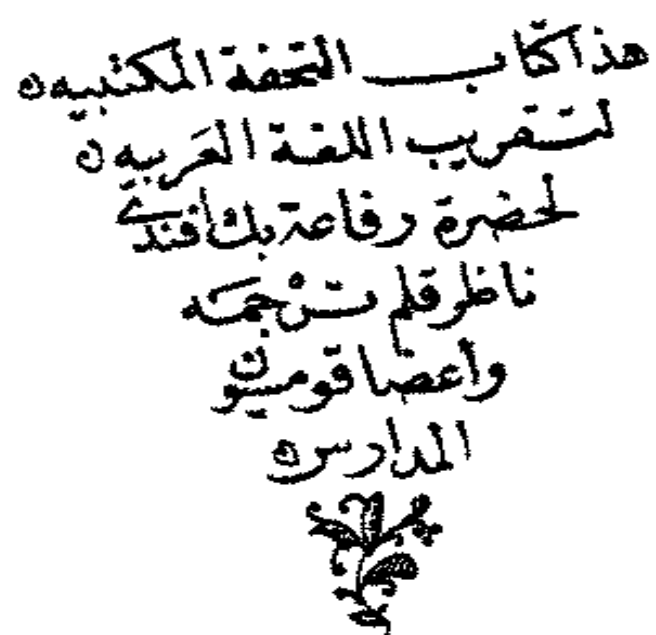 هذا كتاب التحفة المكتبيه
لتقريب اللغة العربيه
لحضرة رفاعة بك أفندى
ناظر قلم ترجمه
وأعضا قومسيون
المدارس